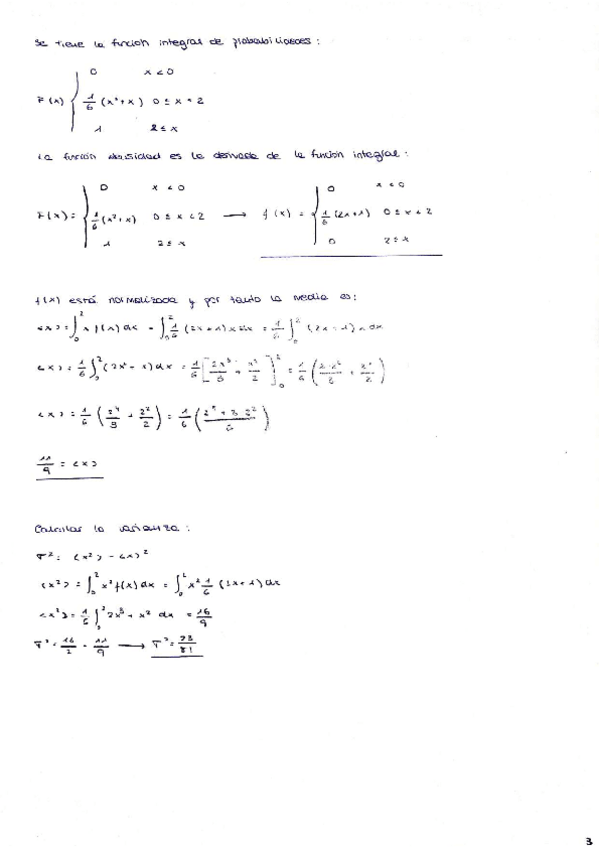 Se tiene la función integral de probabilidades:
0 x < 0
F(x) { 1/6 (x²+x) 0 ≤ x < 2
1 2 ≤ x
La función densidad es la derivada de la función integral:
F(x) = { 0 x < 0; 1/6 (x²+x) 0 ≤ x < 2; 1 2 ≤ x → f(x) = { 0 x < 0; 1/6 (2x+1) 0 ≤ x < 2; 0 2 ≤ x
f(x) está normalizada y por tanto la media es:
<x> = ∫₀² x f(x) dx = ∫₀² 1/6 (2x+1) x dx = 1/6 ∫₀² (2x+1) x dx
<x> = 1/6 ∫₀² (2x²+x) dx = 1/6 [2x³/3 + x²/2]₀² = 1/6 (2·2³/3 + 2²/2)
<x> = 1/6 (2⁴/3 + 2²/2) = 1/6 (2⁵ + 3·2²/6)
11/9 = <x>
Calcular la varianza:
σ² = <x²> - <x>²
<x²> = ∫₀² x² f(x) dx = ∫₀² x² 1/6 (2x+1) dx
<x²> = 1/6 ∫₀² 2x³ + x² dx = 16/9
→ σ² = 23/81
3